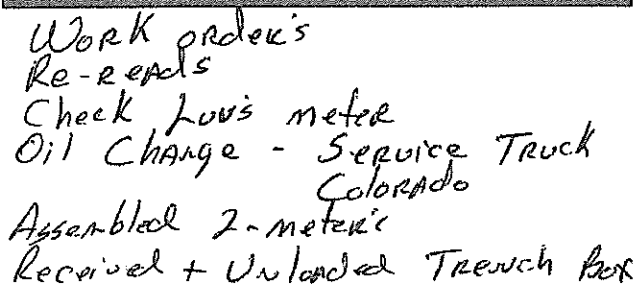 Work order's
Re-Reads
Check Luv's meter
Oil Change - Service Truck
Colorado
Assembled 2-meter's
Received + Unloaded Trench Box